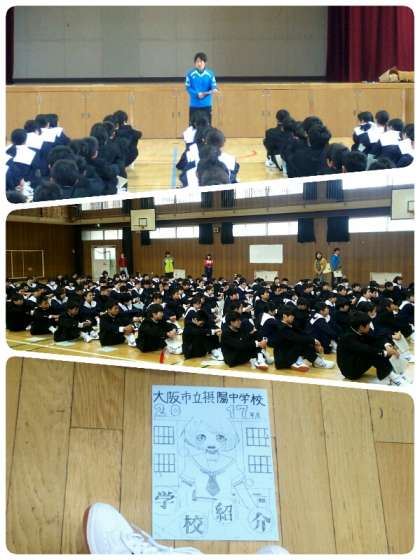 大阪市立摂陽中学校
20 17年度
学校紹介